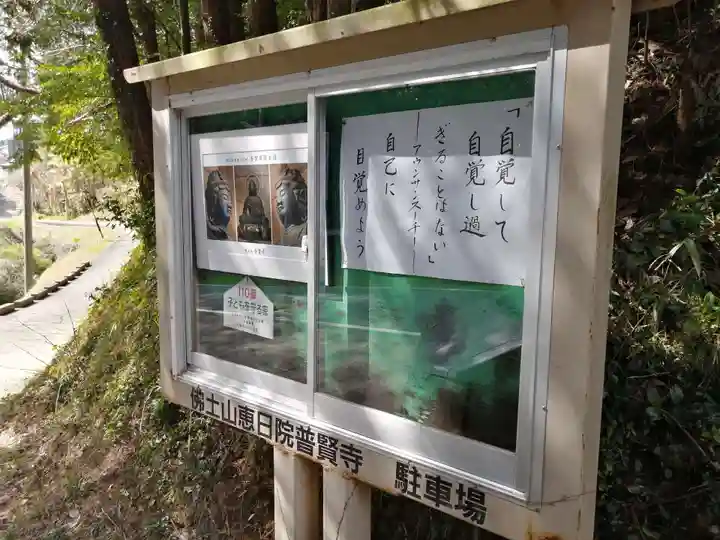 「自覚して
自覚し過
ぎることはない」
―アウンサンスーチー―
自己に
目覚めよう
110番
子どもを守る家
佛土山恵日院普賢寺 駐車場